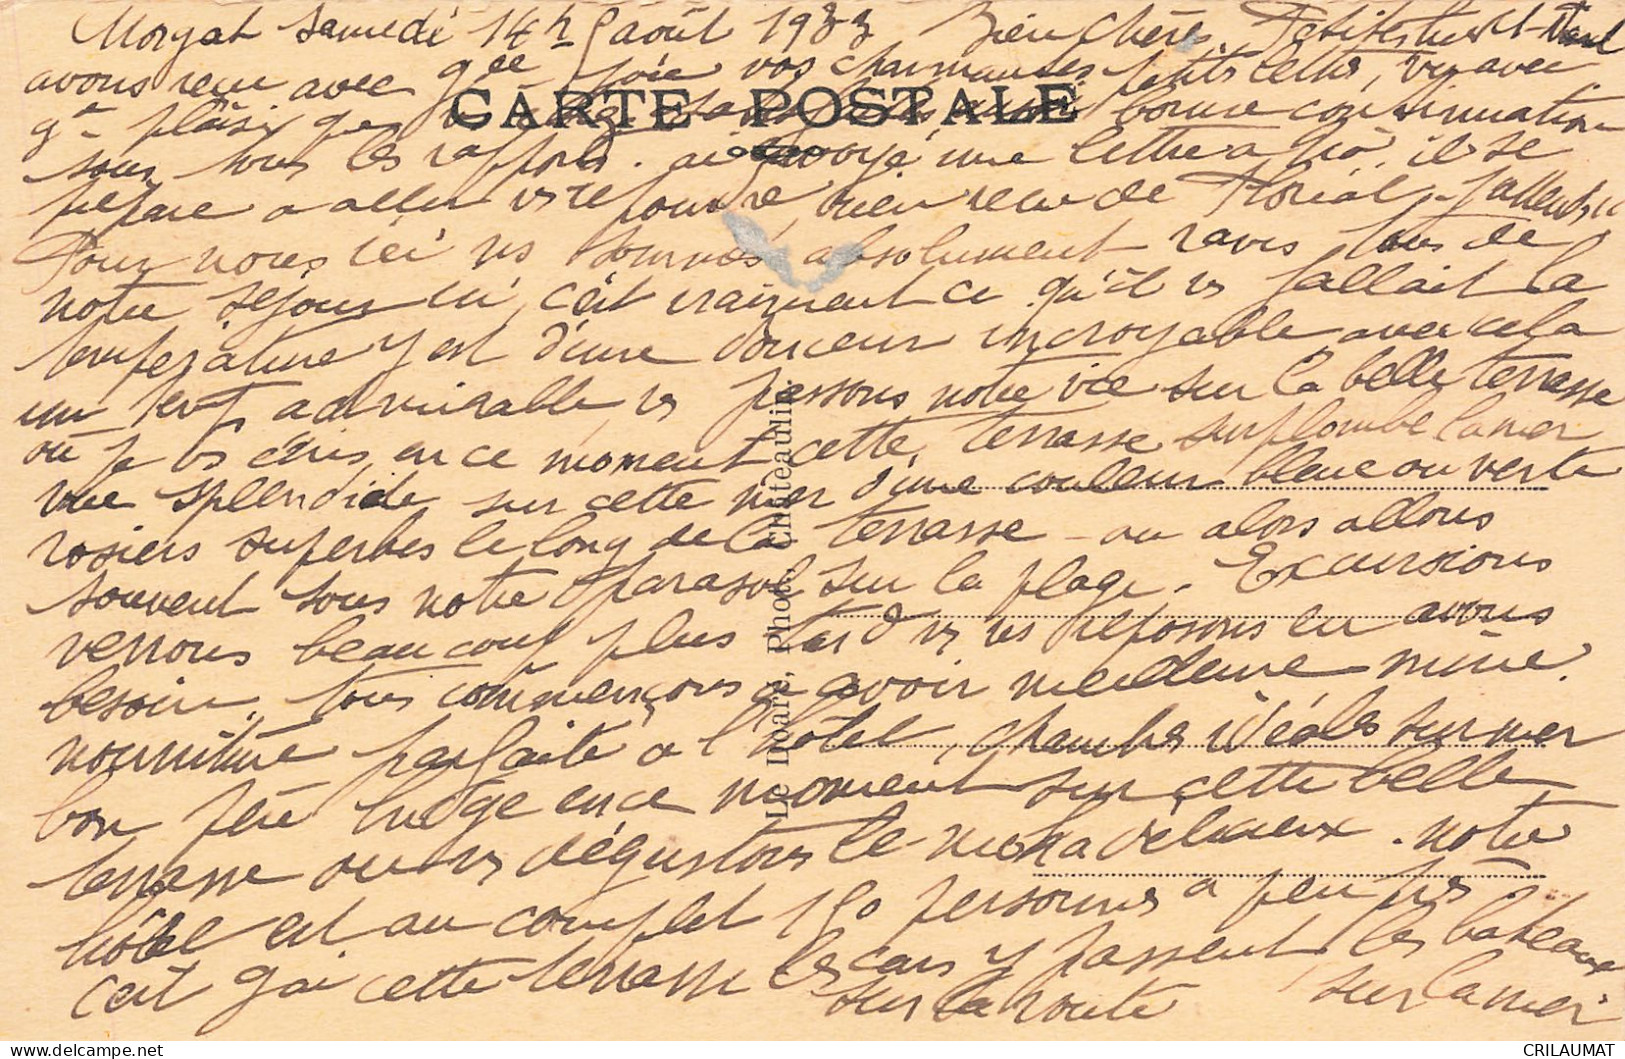 Morgat Samedi 14h 5 août 1933 Bien Chères Petites
avons reçu avec gde joie vos charmantes petites lettres, vu avec
CARTE POSTALE
gd plaisir que bonne continuation
sous tous les rapports. ai envoyé une lettre a il se
prépare a aller vs rejoindre, rien reçu de Floréal
Pour nous ici ns sommes absolument ravis tous de
notre séjour ici, c'est vraiment ce qu'il ns fallait la
température y est d'une douceur incroyable, avec cela
un tps admirable ns passons notre vie sur la belle terrasse
où je vs écris en ce moment cette terrasse surplombe la mer
vue splendide sur cette mer d'une couleur bleue ou verte
rosiers superbes le long de la terrasse - ou alors allons
souvent sous notre parasol sur la plage. Excursions
verrons beaucoup plus tard ns ns reposons en avons
besoin, tous commençons a avoir meilleure mine.
nourriture parfaite a l'hôtel, chambres idéales sur mer
bon père rédige en ce moment sur cette belle
terrasse ou ns dégustons le moka délicieux. notre
hôtel est au complet 150 personnes a peu près
c'est gai cette terrasse les cars y passent les bateaux
sur la route sur la mer
Le Doaré, Phot., Châteaulin.
CRILAUMAT